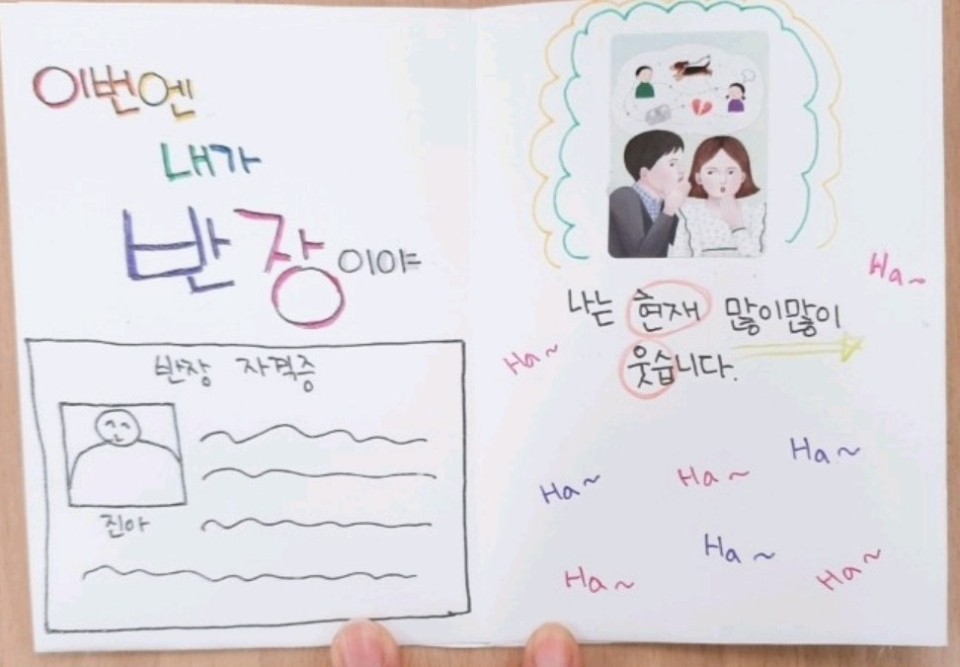 이번엔
내가
반장이야
반장 자격증
진아
나는 현재 많이많이
웃습니다.
Ha~
Ha~
Ha~
Ha~
Ha~
Ha~
Ha~
Ha~